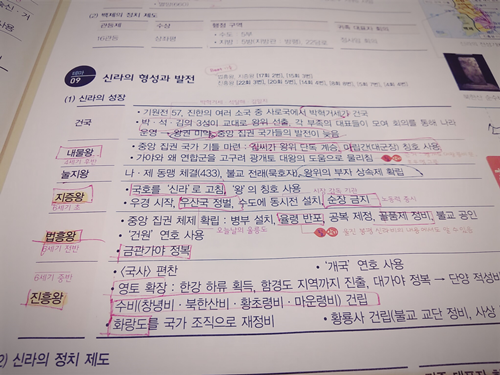 (2) 백제의 정치 제도
관등제 수상 행정 구역
16관등 상좌평
• 수도 : 5부
테마 09 신라의 형성과 발전
(1) 신라의 성장
건국
• 기원전 57, 진한의 여러 소국 중 사로국에서 박혁거세가 건국
• 박 · 석 · 김의 3성이 교대로 왕위 선출, 각 부족의 대표들이 모여 회의를 통해 나라
운영 → 왕권 미약, 중앙 집권 국가들의 발전이 늦음
내물왕
• 중앙 집권 국가 기틀 마련 : 김씨가 왕위 단독 계승, 마립간(대군장) 칭호 사용
4세기 후반
• 가야와 왜 연합군을 고구려 광개토 대왕의 도움으로 물리침
눌지왕
나 · 제 동맹 체결(433), 불교 전래(묵호자), 왕위의 부자 상속제 확립
지증왕
• 국호를 '신라'로 고침, '왕'의 칭호 사용
6세기 초
• 우경 시작, 우산국 정벌, 수도에 동시전 설치, 순장 금지
오늘날의 울릉도
법흥왕
• 중앙 집권 체제 확립 : 병부 설치, 율령 반포, 공복 제정, 골품제 정비, 불교 공인
6세기 전반
• '건원' 연호 사용
• 금관가야 정복
진흥왕
6세기 중반
• 〈국사〉 편찬 • '개국' 연호 사용
• 영토 확장 : 한강 하류 획득, 함경도 지역까지 진출, 대가야 정복 → 단양 적성비
수비(창녕비 · 북한산비 · 황초령비 · 마운령비) 건립
• 화랑도를 국가 조직으로 재정비 • 황룡사 건립(불교 교단 정비, 사상
2) 신라의 정치 제도